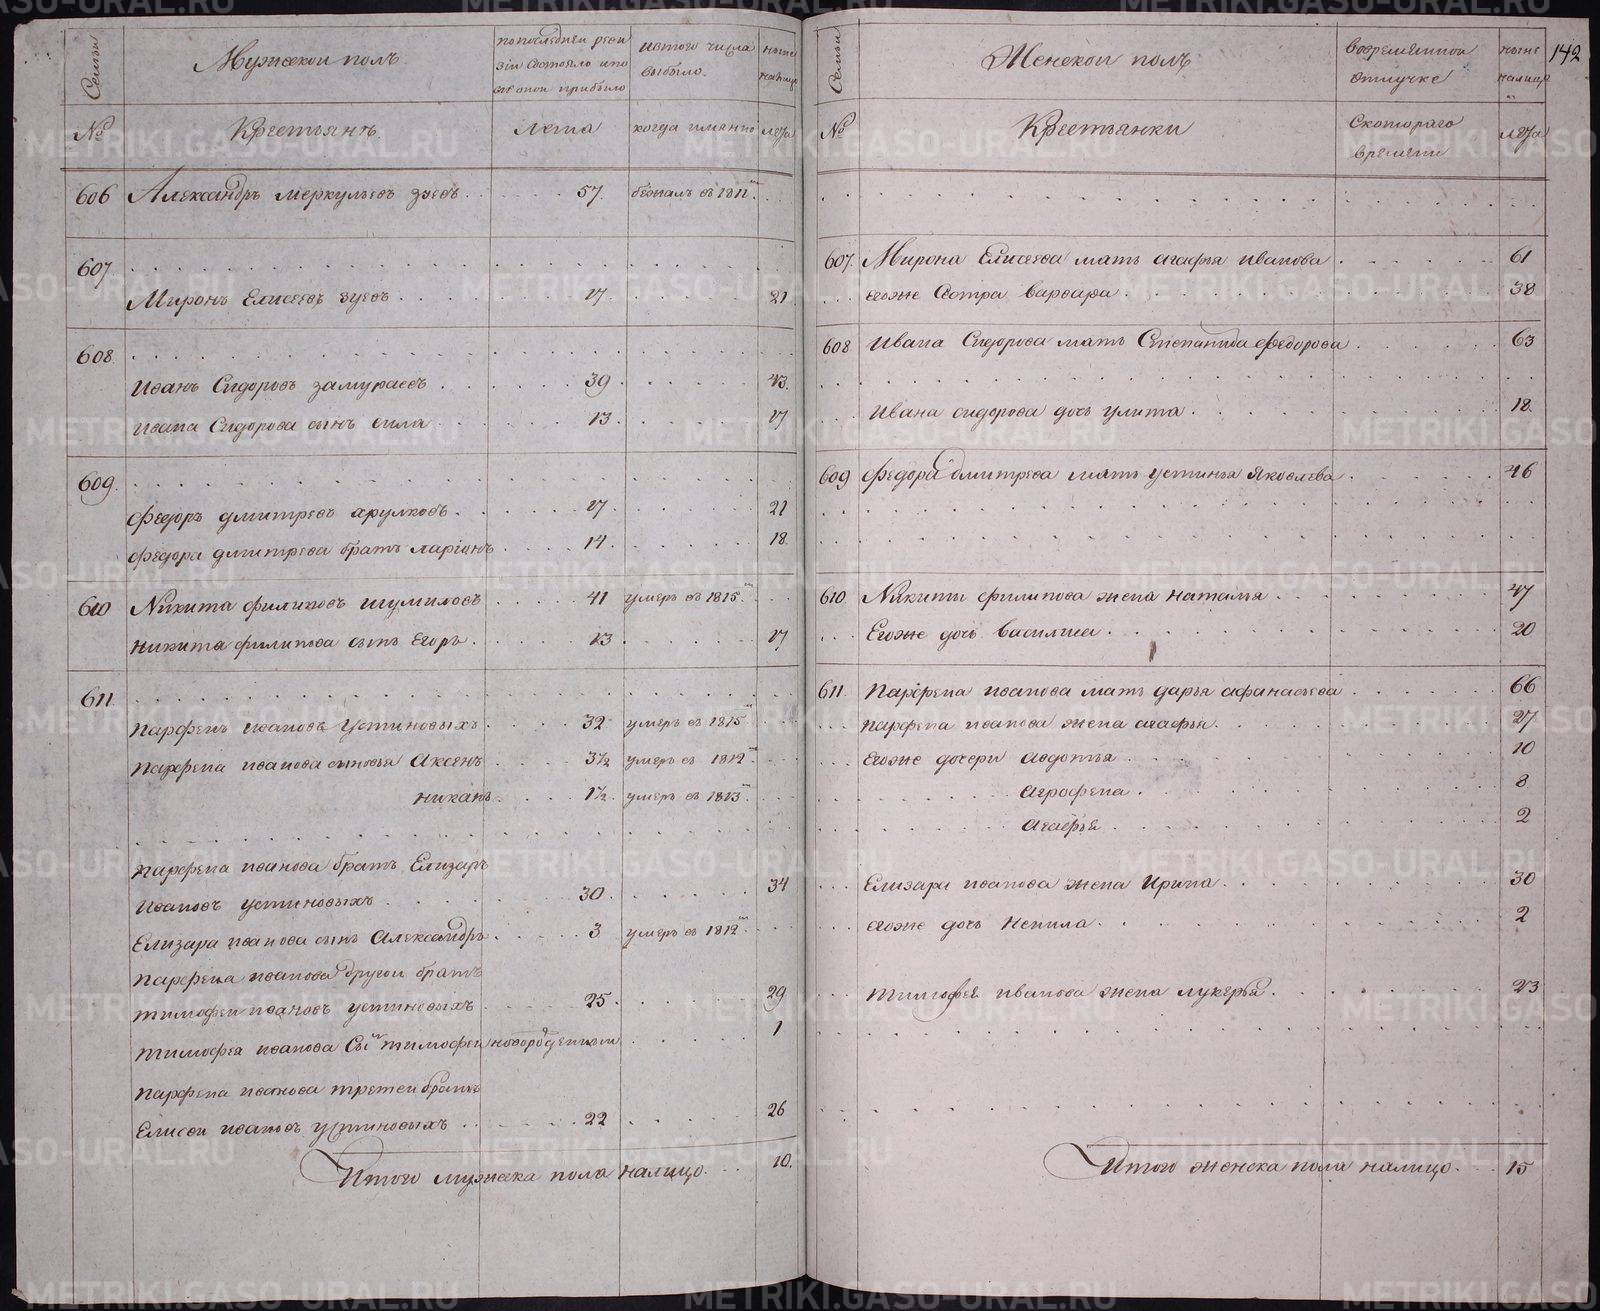 Семьи
Мужескои полъ
попоследнеи реви
зiи состояло ипо
слѣ онои прибыло
изтого числа
выбыло.
ныне
налицо
№
Крестьянъ
Лета
когда имянно
лета
606 Александръ меркульевъ зуевъ 57. бежалъ въ 1811мъ
607.
Миронъ Елисеевъ зуевъ 17 21
608.
Иванъ Сидоровъ замураевъ 39 43
Ивана Сидорова сынъ сила 13. 17
609.
Федоръ дмитревъ арулковъ 17 21
Федора дмитрева братъ ларiонъ 14. 18.
610 Никита филиповъ шумиловъ 41 умеръ въ 1815мъ
никита филипова сынъ Егоръ 13 17
611.
парфенъ ивановъ Устиновыхъ 32 умеръ въ 1815мъ
парфена иванова сыновья Аксенъ 3½ умеръ въ 1812мъ
никанъ 1½ умеръ въ 1813мъ
парфена иванова братъ Елизаръ
ивановъ устиновыхъ 30 34
Елизара иванова сынъ Александръ 3 умеръ въ 1812мъ
парфена иванова другои братъ
тимофеи ивановъ устиновыхъ 25 29
тимофея иванова Сынъ тимофеи новорожденныи 1
парфена иванова третеи братъ
Елисеи ивановъ устиновыхъ 22 26
Итого мужеска пола налицо. 10.
142
Семьи
Женскои полъ
вовременнои
отлучке
ныне
налицо
№
Крестьянки
Скотораго
времени
лета
607. Мирона Елисеева мать агафья иванова 61
егоже Сестра варвара 38
608 Ивана Сидорова мать Степанида федорова 63
Ивана сидорова дочь улита 18.
609 Федора дмитрева мать устинья Яковлева 46
610 Никиты филипова жена наталья 47
Егоже дочь василиса 20
611. Парфена иванова мать дарья афанасьева 66
парфена иванова жена агафья 27
Егоже дочери авдотья 10
Агрофена 8
Агафья 2
Елизара иванова жена Ирина 30
егоже дочь Ненила 2
тимофея иванова жена лукерья 23
Итого женска пола налицо. 15
METRIKI.GASO-URAL.RU